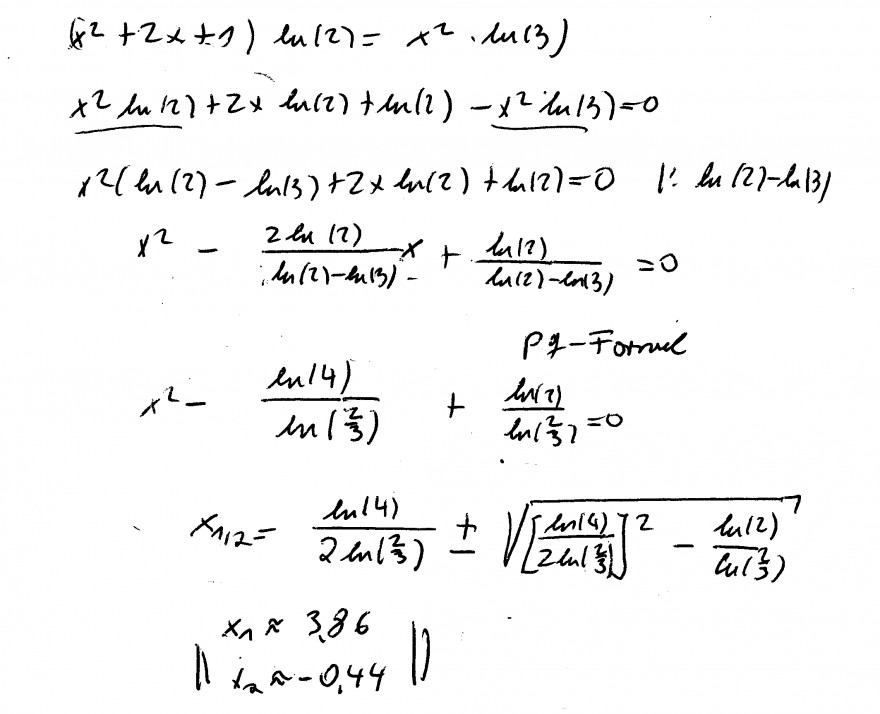 (x² + 2x + 1) ln(2) = x² · ln(3)
x² ln(2) + 2x ln(2) + ln(2) − x² ln(3) = 0
x²(ln(2) − ln(3) + 2x ln(2) + ln(2) = 0 |: ln(2) − ln(3)
x² − 2 ln(2) / ln(2) − ln(3) x + ln(2) / ln(2) − ln(3) = 0
pq-Formel
x² − ln(4) / ln(2/3) + ln(2) / ln(2/3) = 0
x₁,₂ = ln(4) / 2 ln(2/3) ± √[ln(4) / 2 ln(2/3)]² − ln(2) / ln(2/3)
x₁ ≈ 3,86
x₂ ≈ −0,44